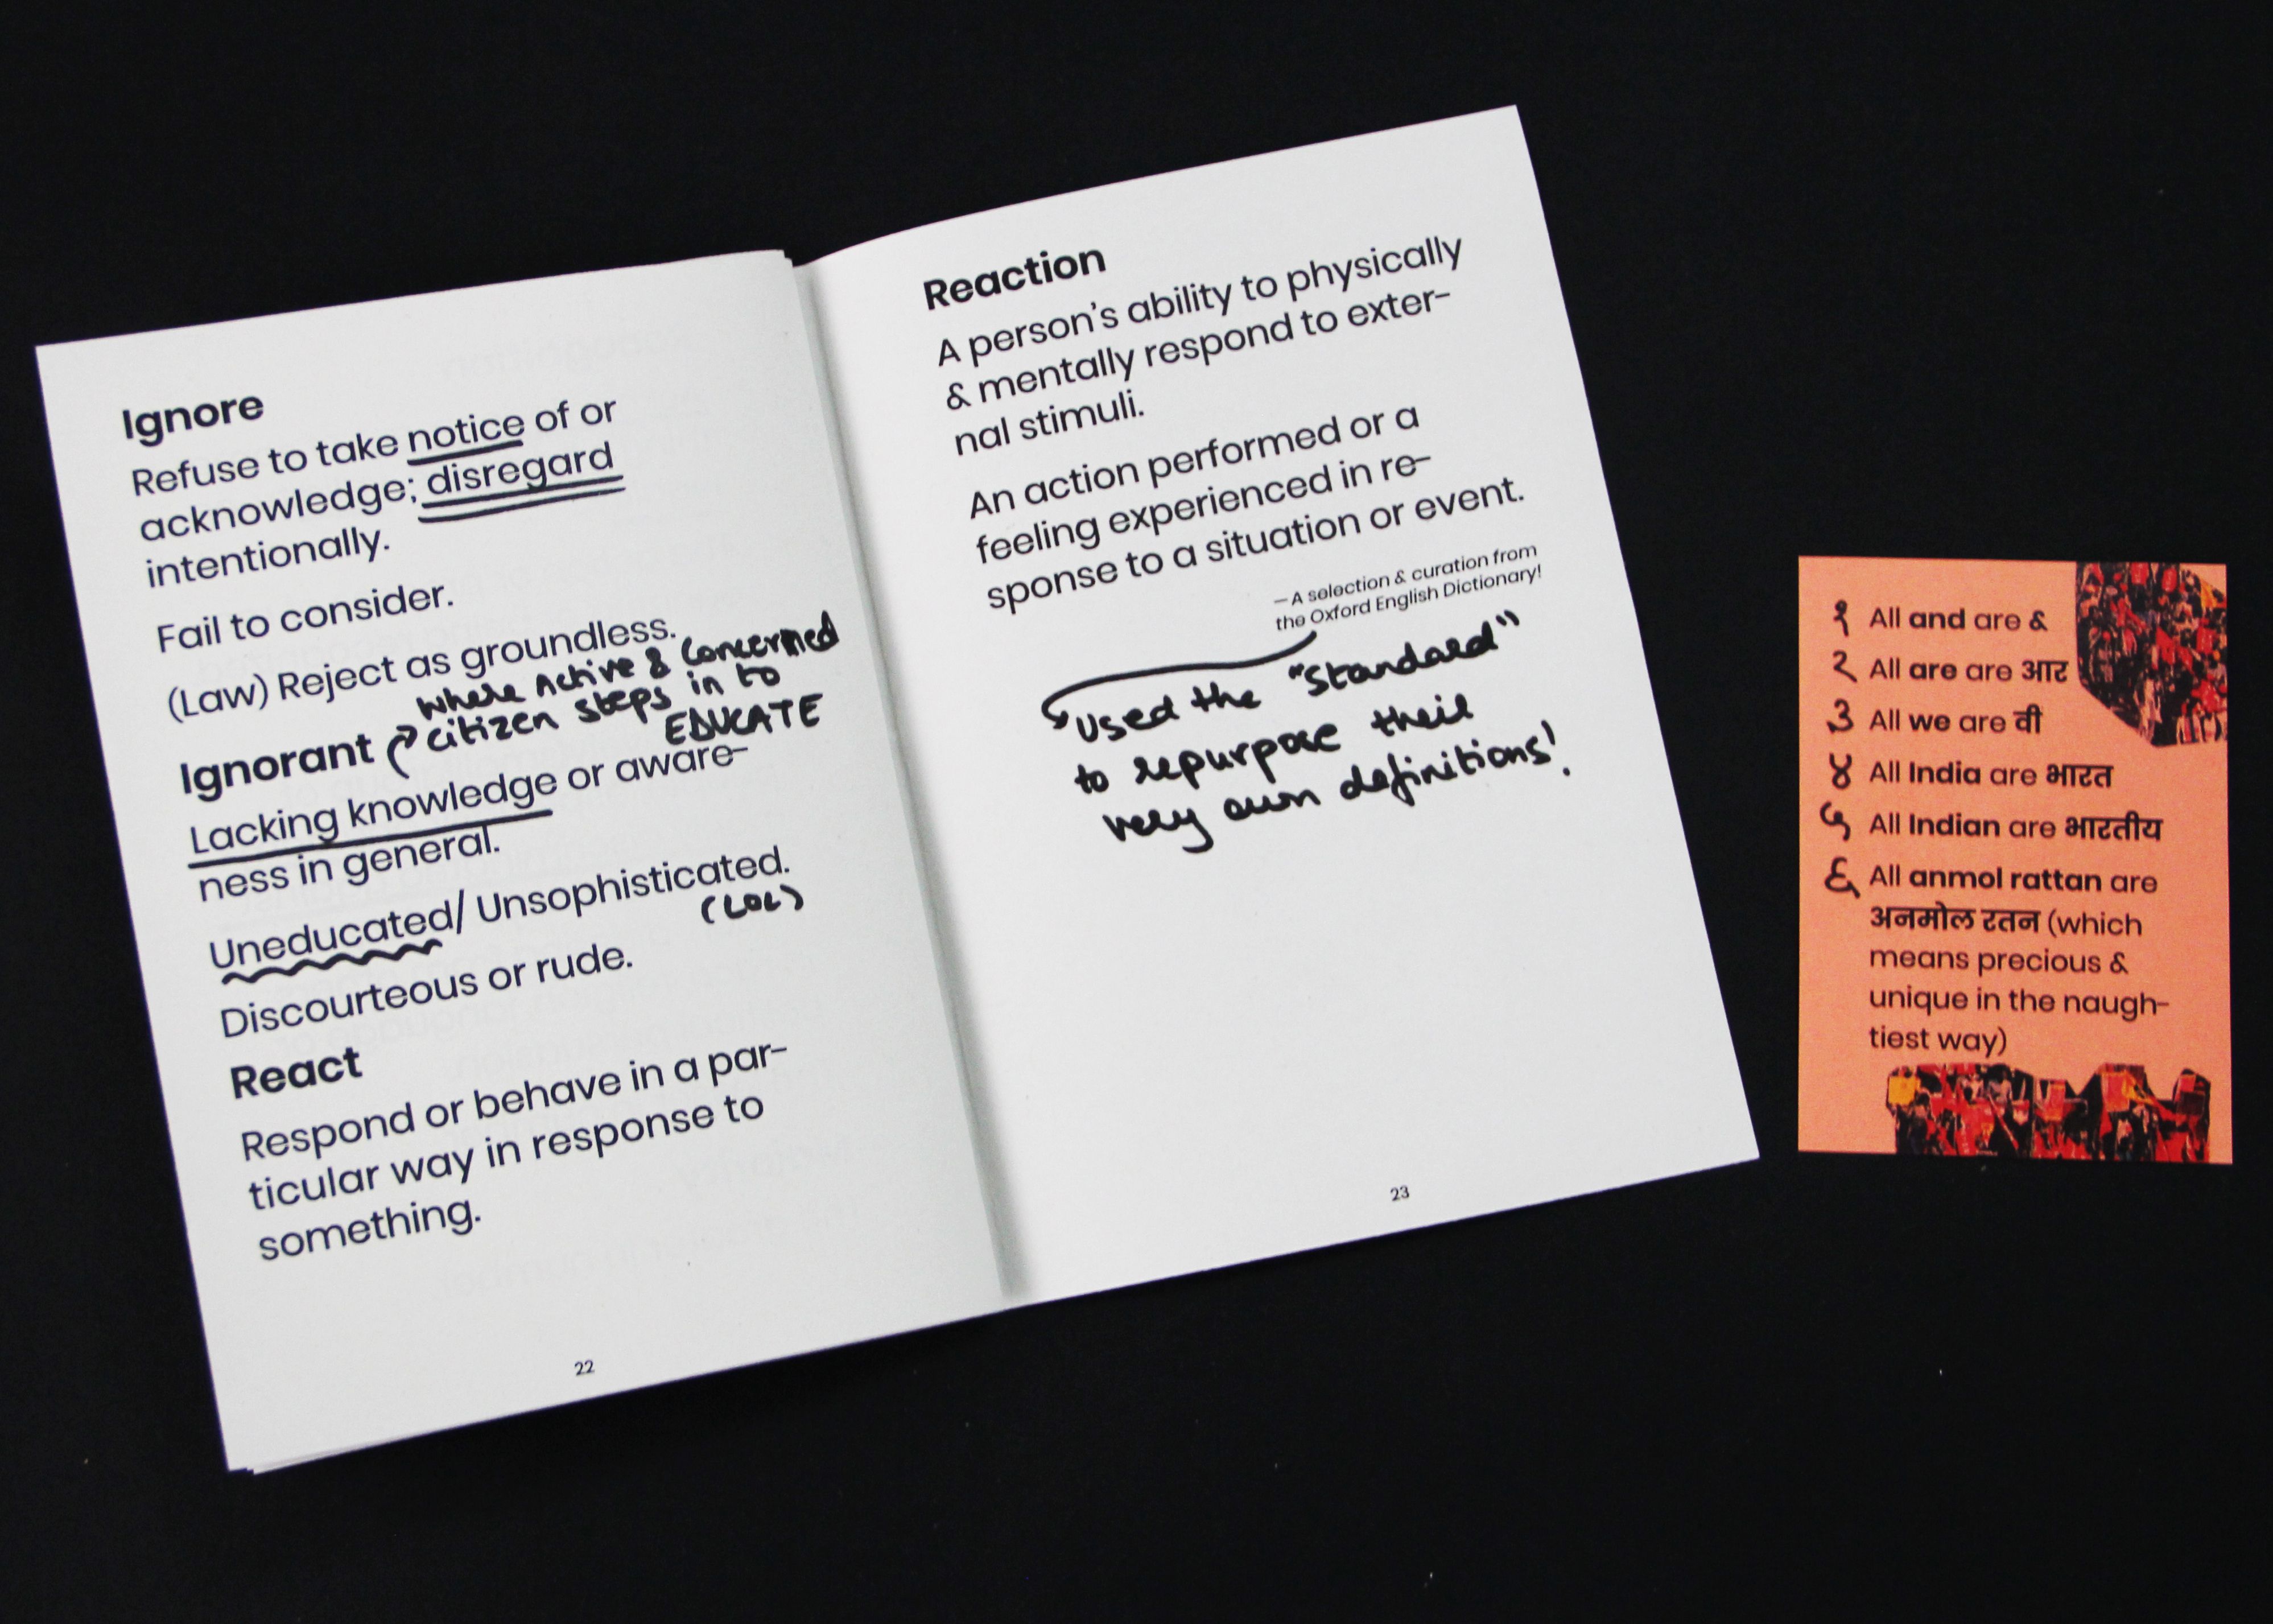 Ignore
Refuse to take notice of or
acknowledge; disregard
intentionally.
Fail to consider.
(Law) Reject as groundless.
where Active & Concerned
citizen steps in to
EDUCATE
Ignorant
Lacking knowledge or aware-
ness in general.
Uneducated/ Unsophisticated.
(LOL)
Discourteous or rude.
React
Respond or behave in a par-
ticular way in response to
something.
22
Reaction
A person's ability to physically
& mentally respond to exter-
nal stimuli.
An action performed or a
feeling experienced in re-
sponse to a situation or event.
—A selection & curation from
the Oxford English Dictionary!
Used the "Standard"
to repurpose their
very own definitions!
23
१ All and are &
२ All are are आर
३ All we are वी
४ All India are भारत
५ All Indian are भारतीय
६ All anmol rattan are
अनमोल रतन (which
means precious &
unique in the naugh-
tiest way)